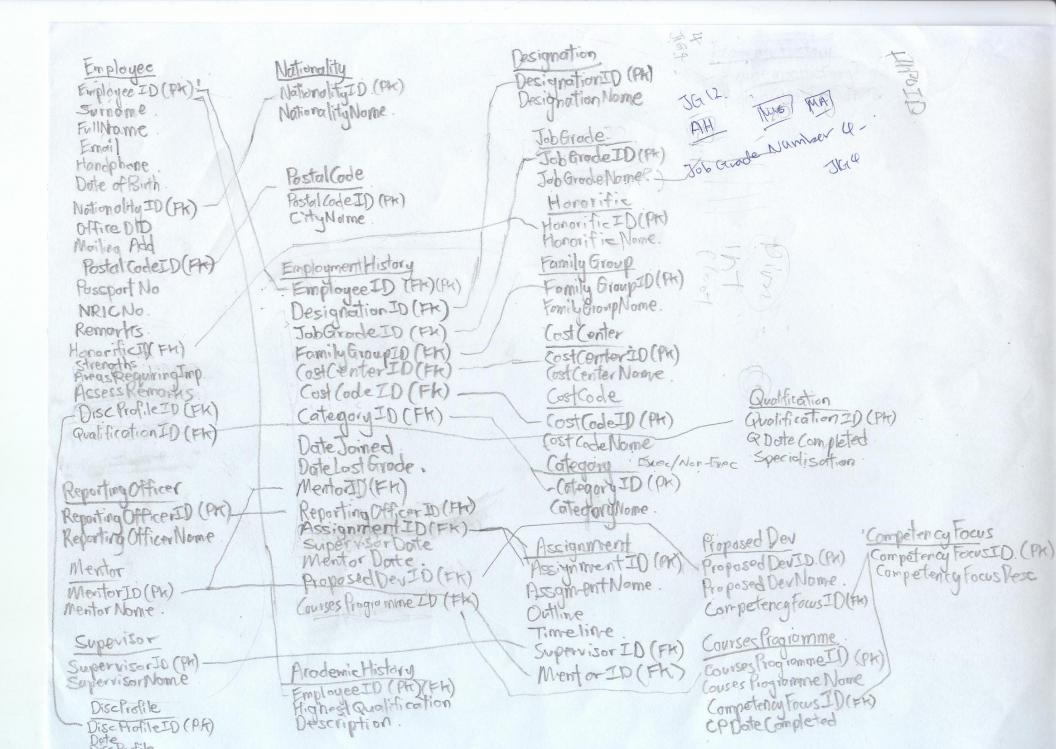 Employee
EmployeeID (PK)
Surname
FullName
Email
Handphone
Date of Birth
NationalityID (FK)
Office DID
Mailing Add
PostalCodeID (FK)
Passport No
NRIC No.
Remarks
HonorificID (FK)
Strengths
AreasRequiringImp
AssessRemarks
DiscProfileID (FK)
QualificationID (FK)
ReportingOfficer
ReportingOfficerID (PK)
ReportingOfficerName
Mentor
MentorID (PK)
MentorName
Supervisor
SupervisorID (PK)
SupervisorName
DiscProfile
DiscProfileID (PK)
Date
Nationality
NationalityID (PK)
NationalityName
PostalCode
PostalCodeID (PK)
CityName
EmploymentHistory
EmployeeID (FK)(PK)
DesignationID (FK)
JobGradeID (FK)
FamilyGroupID (FK)
CostCenterID (FK)
CostCodeID (FK)
CategoryID (FK)
DateJoined
DateLastGrade
MentorID (FK)
ReportingOfficerID (FK)
AssignmentID (FK)
SupervisorDate
Mentor Date
ProposedDevID (FK)
CoursesProgrammeID (FK)
AcademicHistory
EmployeeID (PK)(FK)
HighestQualification
Description
Designation
DesignationID (PK)
DesignationName
JobGrade
JobGradeID (PK)
JobGradeName
Honorific
HonorificID (PK)
HonorificName
FamilyGroup
FamilyGroupID (PK)
FamilyGroupName
CostCenter
CostCenterID (PK)
CostCenterName
CostCode
CostCodeID (PK)
CostCodeName
Category Exec/Non-Exec
CategoryID (PK)
CategoryName
Assignment
AssignmentID (PK)
AssignmentName
Outline
Timeline
SupervisorID (FK)
MentorID (FK)
JG12
AH MA
Job Grade Number 4
JG4
Qualification
QualificationID (PK)
QDateCompleted
Specialisation
Proposed Dev
ProposedDevID (PK)
ProposedDevName
CompetencyFocusID (FK)
CoursesProgramme
CoursesProgrammeID (PK)
CousesProgrammeName
CompetencyFocusID (FK)
CPDateCompleted
CompetencyFocus
CompetencyFocusID (PK)
CompetencyFocusDesc